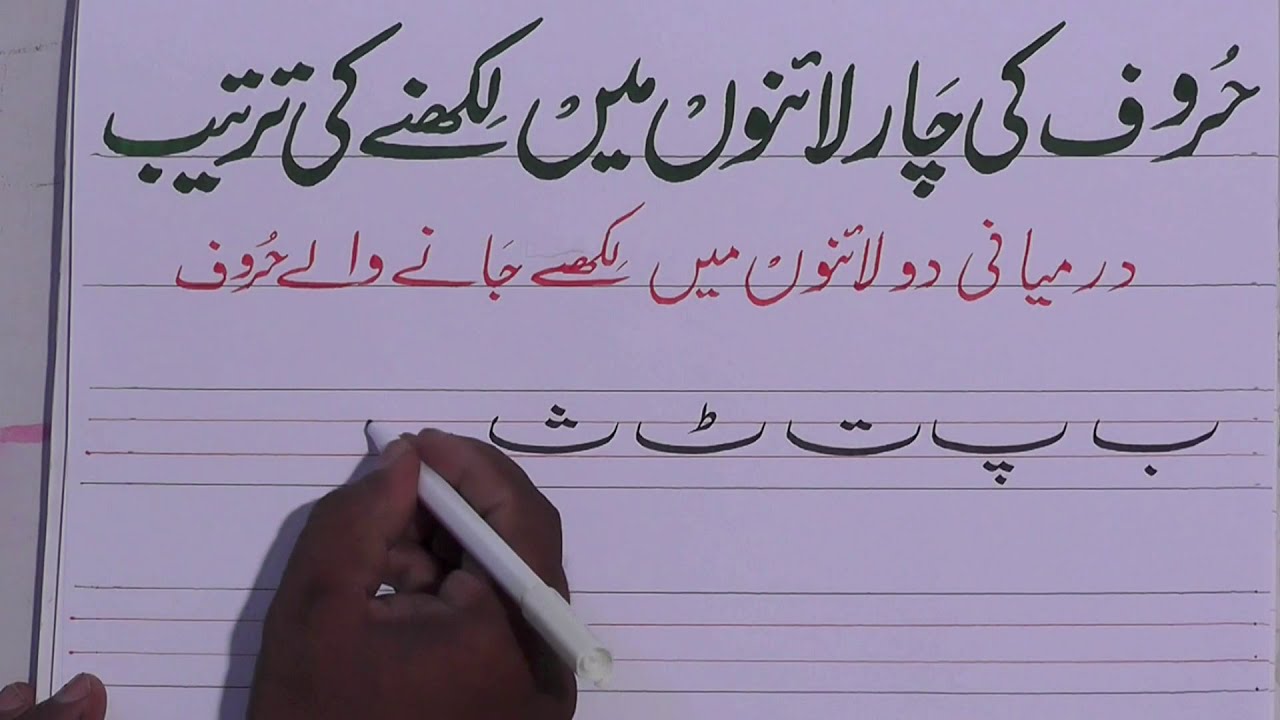 حُروف کی چَار لائنوں میں لِکھنے کی ترتیب
درمیانی دو لائنوں میں لِکھے جَانے والے حُروف
ب پ ت ٹ ث